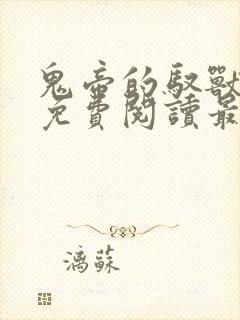 鬼帝的馭獸
免費閱讀最
漓蘇